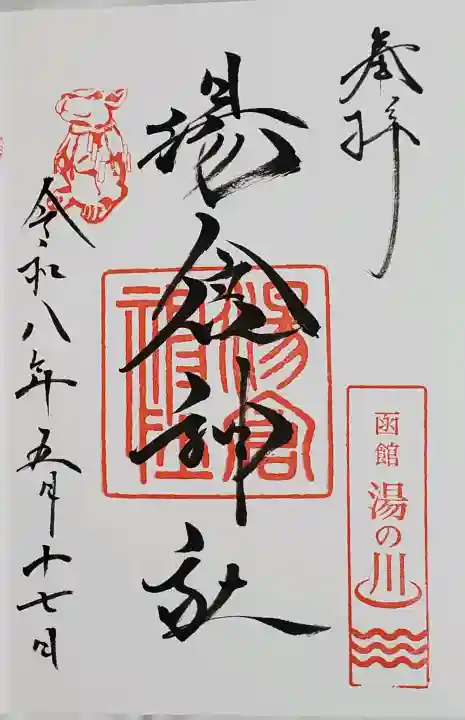 奉拝
函館
湯の川
湯倉神社
湯倉
神社
令和八年五月十七日